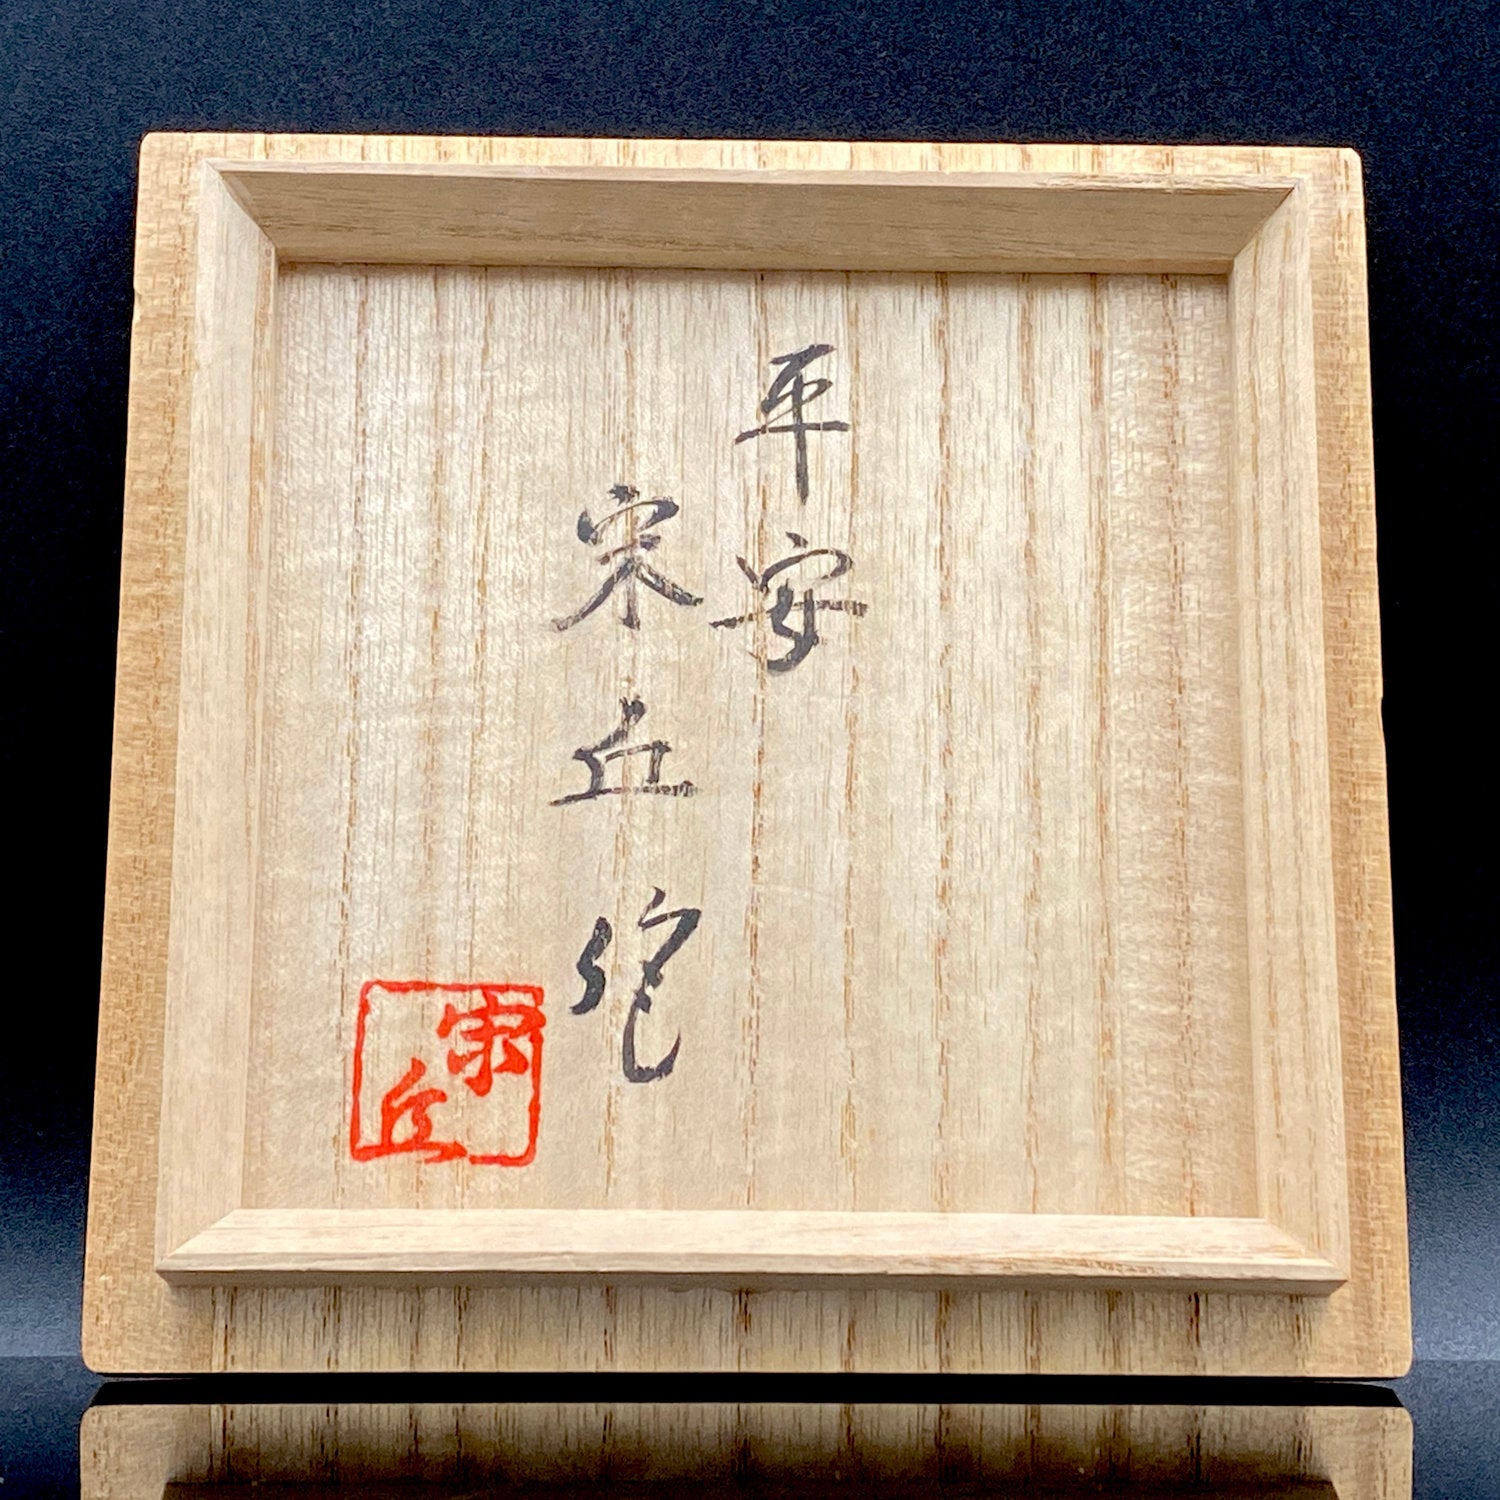 平安
宗丘作
宗丘